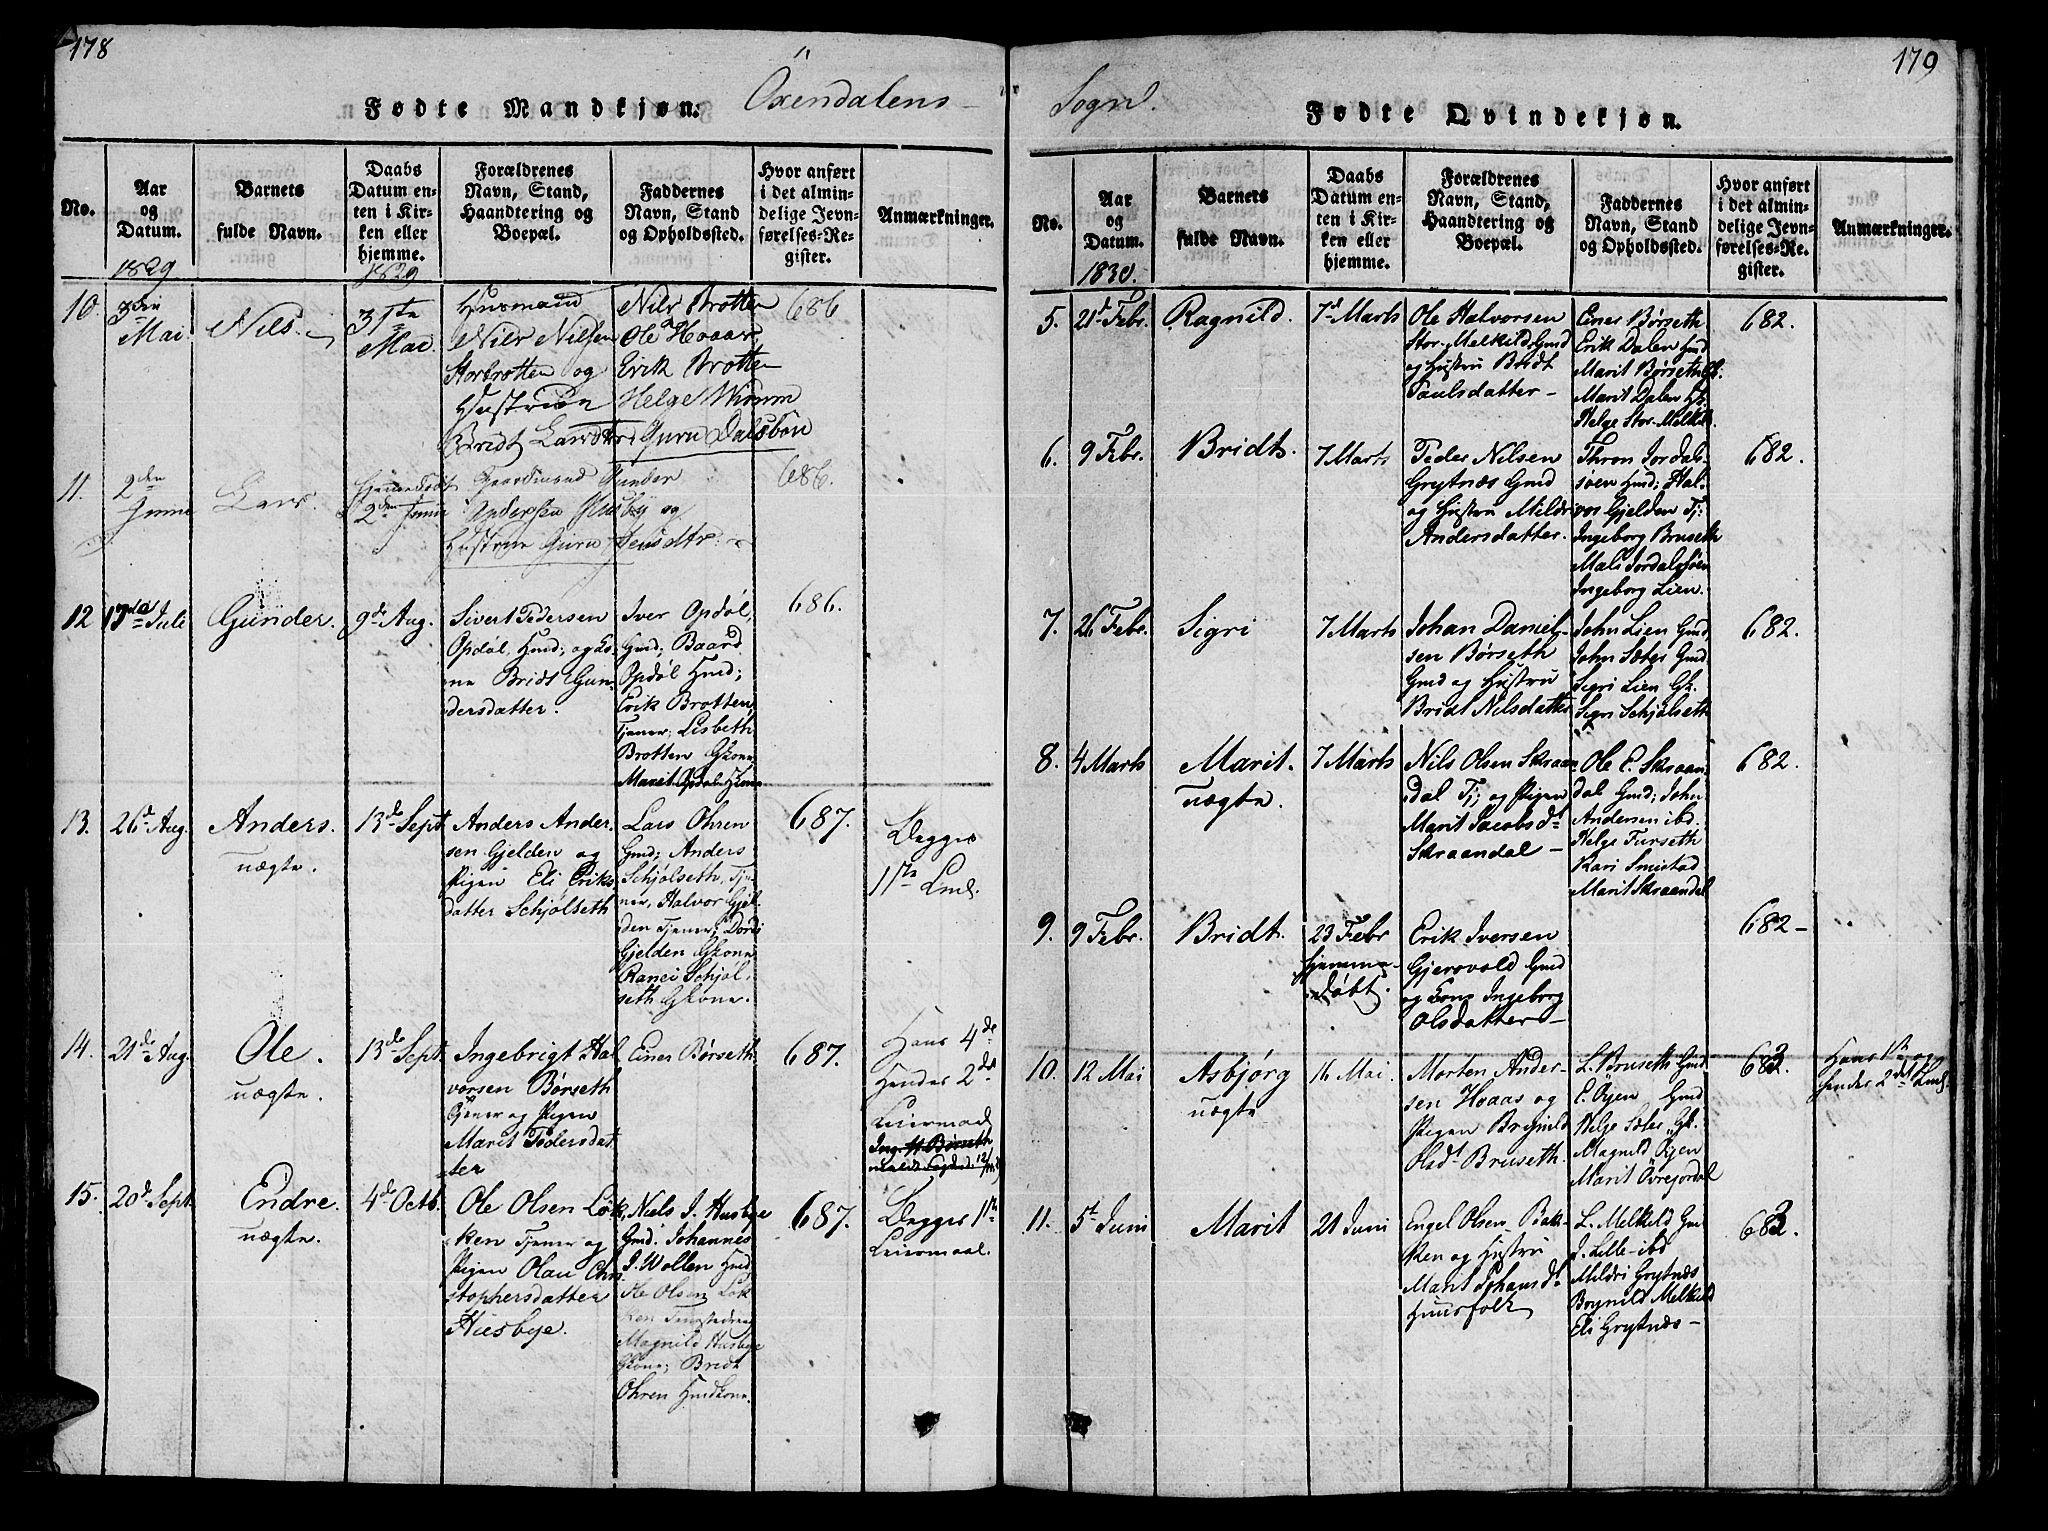 178
Fødte Mandkjøn.
Öxendalens
No.
Aar
og
Datum.
Barnets
fulde Navn.
Daabs
Datum en-
ten i Kir-
ken eller
hjemme.
Forældrenes
Navn, Stand,
Haandtering og
Boepæl.
Faddernes
Navn, Stand
og Opholdssted.
Hvor anført
i det almin-
delige Jevn-
førelses-Re-
gister.
Anmærkninger.
1829
1829
10.
3die
Mai
Nils.
31te
Mai.
Husmand
Nils Nilsen
Storbrotten og
Hustrue
Bridt Larsdtr
Nils Brotten
Ole Hoaas
Erik Brotten
Helge
Guru Dalsbön
686
11.
2den
Junii
Lars.
Hjemmedøbt
2den Junii
Gaardmand Gunder
Andersen Husby og
Hustrue Guru Jensdtr:
686.
12
Juli
Gunder.
9de Aug.
Sivert Pedersen
Opdøl, Hmd; og Ko-
ne Bridt Gun-
dersdatter.
Iver Opdøl,
Gmd; Baard
Opdøl Hmd;
Erik Brotten,
Tjener; Lisbeth
Brotten Gkone
Marit Opdøl Hkone
686.
13.
26d Aug.
Anders.
uægte.
13de Sept.
Anders Ander-
sen Gjelden og
Pigen Eli Eriks-
datter Schjølseth
Lars Ohren
Gmd; Anders
Schjølseth, Tje-
ner, Halvor Gjel-
den Tjener; Dordi
Gjelden Gkone
Ranei Schjøl-
seth Gkone.
687.
Begges
1ste Lml.
14.
21de Aug.
Ole.
uægte.
13de Sept.
Ingebrigt Hal-
vorsen Børseth
Tjener og Pigen
Marit Pedersdat-
ter
Einer Børseth
687.
Hans 4de
Hendes 2det
Leiermaal
Ing. H Børseth
15.
20d Sept.
Endre.
uægte.
4de Octb.
Ole Olsen Løk-
ken Tjener og
Pigen Olau Chri-
stophersdatter
Husbye.
Niels J. Husbye
Gmd. Johannes
J. Wollen Hmd
Ole Olsen Løk-
ken
Magnild Husbye
Gkone; Bridt
Ohren Hmdkone.
687.
Begges 1ste
Leiermaal.
179
Sogn.
Fødte Qvindekjøn.
No.
Aar
og
Datum.
Barnets
fulde Navn.
Daabs
Datum en-
ten i Kir-
ken eller
hjemme.
Forældrenes
Navn, Stand,
Haandtering og
Boepæl.
Faddernes
Navn, Stand
og Opholdssted.
Hvor anført
i det almin-
delige Jevn-
førelses-Re-
gister.
Anmærkninger.
1830.
5.
21d Febr.
Ragnild.
7d Marts
Ole Halvorsen
Stor-Melkild, Gmd
og Hustru Bridt
Paulsdatter –
Einer Børseth
Erik Dalen Hmd
Marit Børseth Gk.
Marit Dalen Hk.
Helge Stor-Melkild.
682.
6.
9 Febr.
Bridt.
7 Marts
Peder Nilsen
Grytnæs Gmd
og Hustru Mildri
Andersdatter.
Thron Jordal-
søen Hmd; Hal-
vor Gjelden Tj;
Ingeborg Bruseth
Mali Jordalsøen
Ingeborg Lien.
682.
7.
26 Febr.
Sigri
7 Marts
Johan Daniel-
sen Børseth
Gmd og Hustru
Bridt Nilsdatter
John Lien Gmd
John Sæter Gmd
Sigri Lien Gk.
Sigri Schjølseth
682.
8.
4 Marts
Marit.
uægte.
7 Marts
Nils Olsen Skraan-
dal Tj; og Pigen
Marit Jacobsdt
Skraandal –
Ole E. Skraan-
dal Gmd; John
Andersen ibd.
Helge Furseth
Kari Smistad
Marit Skraandal
682.
9.
9 Febr.
Bridt.
23 Febr
hjemme-
døbt.
Erik Iversen
Gjersvold Gmd
og Kone Ingeborg
Olsdatter –
682 –
10.
12 Mai
Asbjørg
uægte
16 Mai.
Morten Ander-
sen Hoaas og
Pigen Brynild
Olsdt Bruseth.
L. Bruseth Gmd
E. Øyen Gmd
Helge Sæter, Gk.
Magnild Øyen
Marit Øvrejordal
683.
Hans 1ste og
hendes 2det Lml.
11.
5t Juni
Marit
21 Juni
Engel Olsen Bak-
ken og Hustru
Marit Johansdt
Huusfolk
L. Melkild Gmd
J. Lille- ibd
Mildri Grytnæs
Brynild Melkild
Eli Grytnæs –
683.